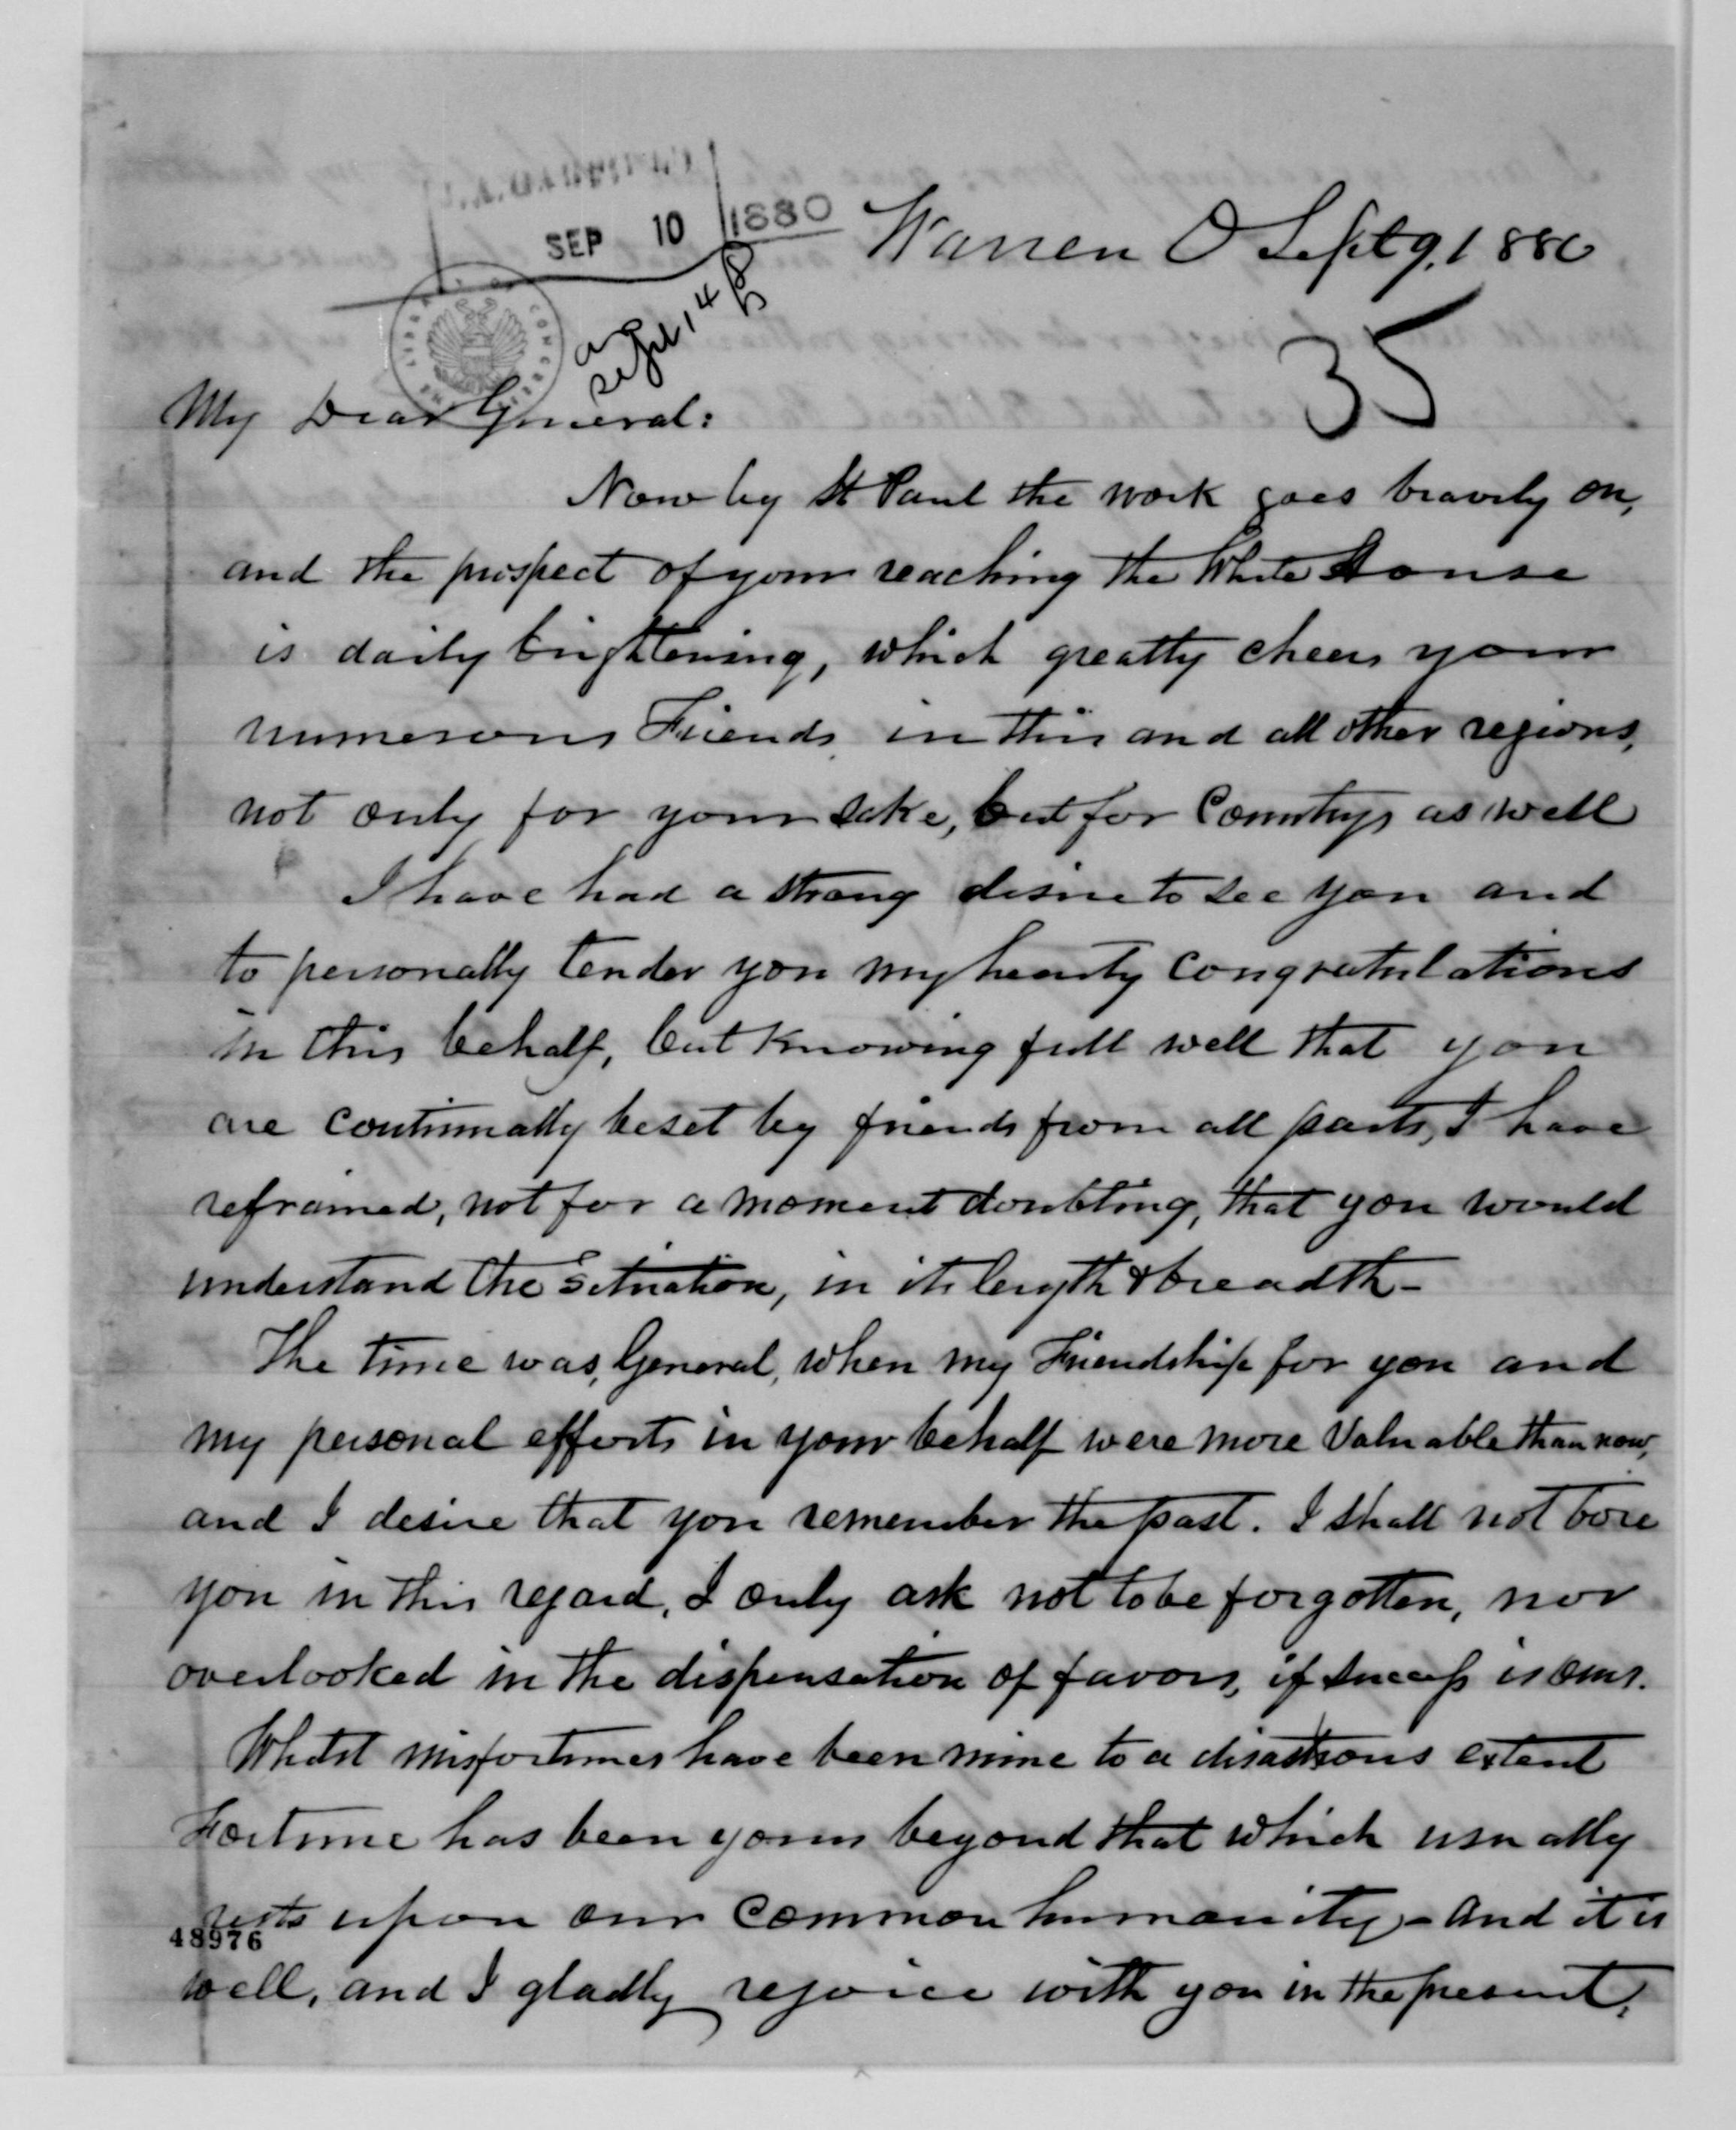 J.A. GARFIELD
SEP 10 1880
Warren O Sept 9, 1880
ans
Sept 14
35
My Dear General:
Now by St Paul the work goes bravely on,
and the prospect of your reaching the White House
is daily brightening, which greatly cheers your
numerous Friends in this and all other regions,
not only for your sake, but for Countrys as well
I have had a strong desire to see you and
to personally tender you my hearty congratulations
in this behalf, but knowing full well that you
are continually beset by friends from all parts, I have
refrained, not for a moment doubting, that you would
understand the situation, in its length & breadth -
The time was, General, when my Friendship for you and
my personal efforts in your behalf were more valuable than now,
and I desire that you remember the past. I shall not bore
you in this regard, I only ask not to be forgotten, nor
overlooked in the dispensation of favors, if success is ours.
Whilst misfortunes have been mine to a disastrous extent
Fortune has been yours beyond that which usually
rests upon our common humanity - and it is
48976
well, and I gladly rejoice with you in the present,